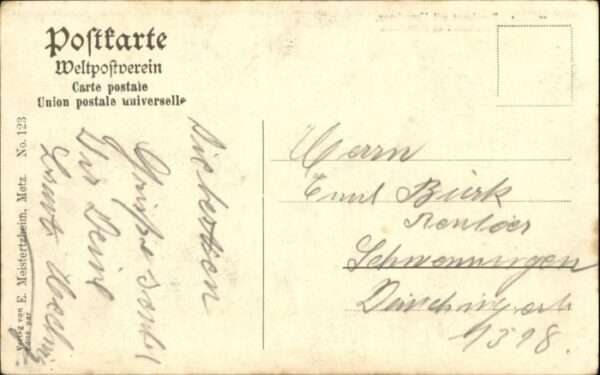 Postkarte
Weltpostverein
Carte postale
Union postale universelle
Verlag von E. Meistertzheim, Metz. No. 123
Die besten
Grüsse sendet
Dir Deine
Herrn
Emil Bürk
Rentier
Schwenningen
1318.